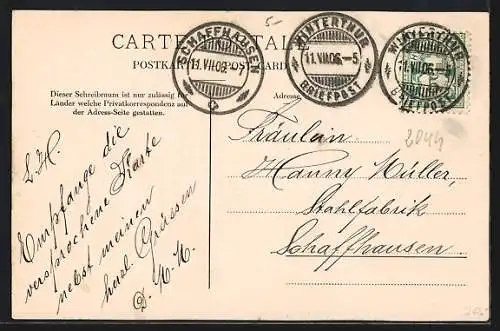 CARTE POSTALE
POSTKARTE POSTCARD
SCHAFFHAUSEN
11.VII.06. -7
WINTERTHUR
11.VII.06. -5
BRIEFPOST
WINTERTHUR
11.VII.06. -5
BRIEFPOST
5-
Dieser Schreibraum ist nur zulässig für
Länder welche Privatkorrespondenz auf
der Adress-Seite gestatten.
Adresse
2044
L. H.
Empfange die
versprochene Karte
nebst meinen
herzl. Grüssen
D. M. M.
Fräulein
Hanny Müller,
Stahlfabrik
Schaffhausen